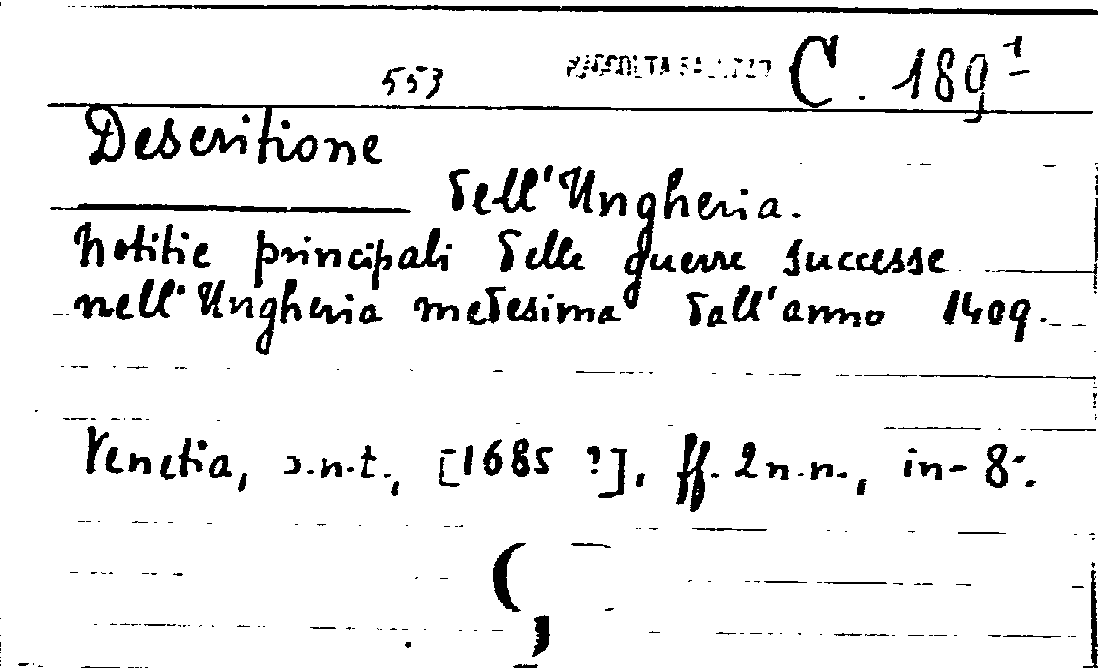 553 RACCOLTA SALUZZO C. 189¹
Descritione
dell'Ungheria.
Notitie principali delle guerre successe
nell'Ungheria medesima dall'anno 1409.
Venetia, s.n.t., [1685 ?], ff. 2 n.n., in-8°.